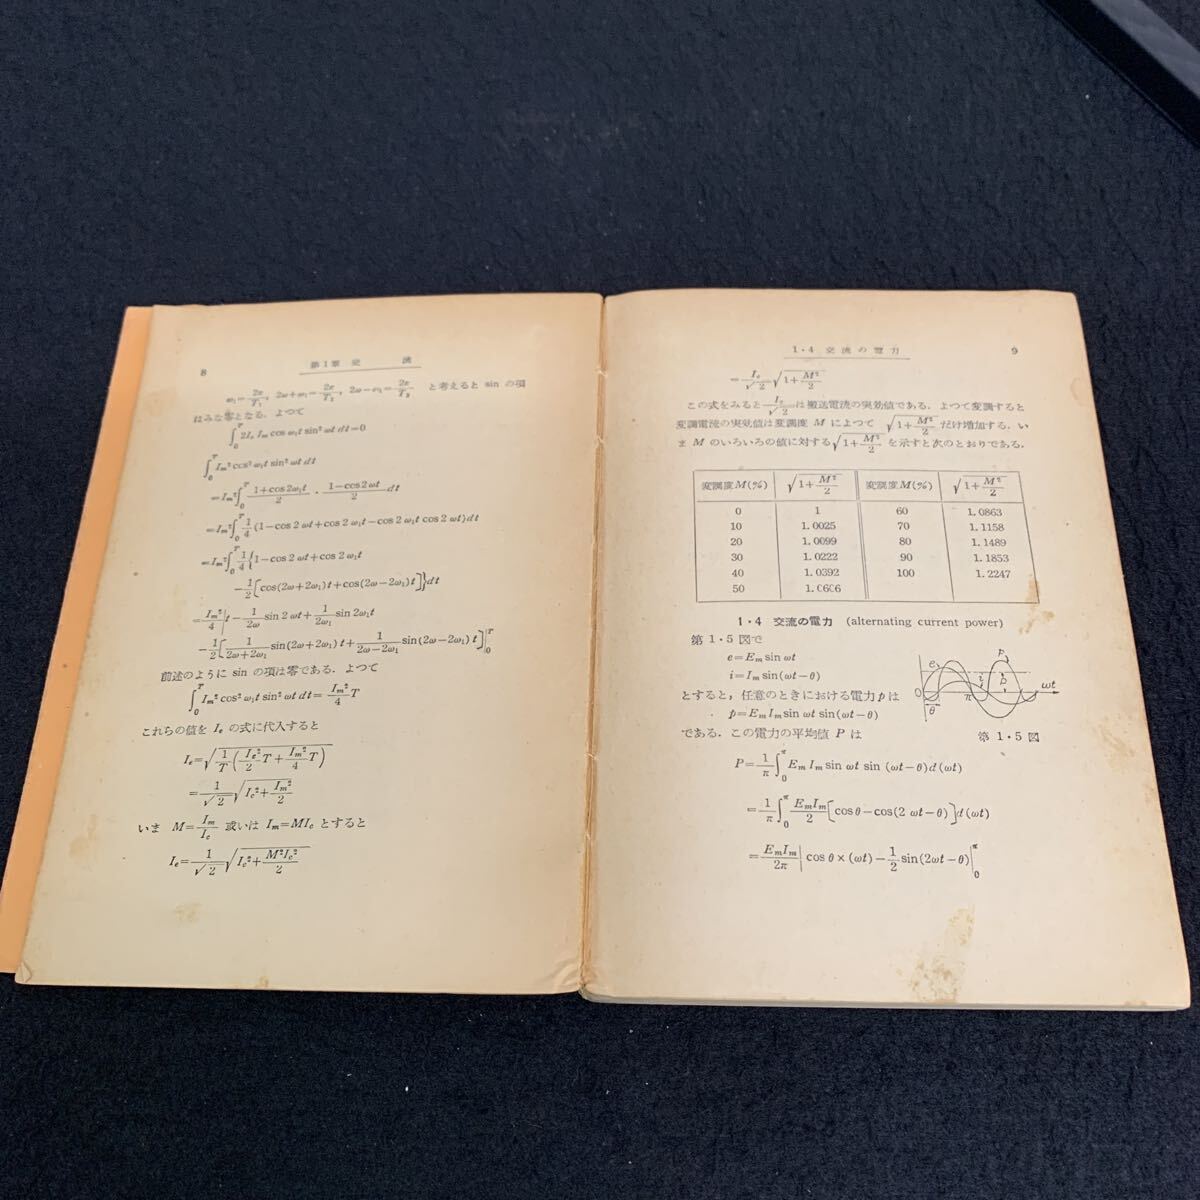 8
第1章 交 流
ω₁=2π/T₁, 2ω+ω₁=2π/T₂, 2ω−ω₁=2π/T₃ と考えると sin の項
はみな零となる．よつて
∫₀ᵀ 2I_c I_m cos ω₁t sin² ωt dt=0
∫₀ᵀ I_m² cos² ω₁t sin² ωt dt
=I_m² ∫₀ᵀ (1+cos 2ω₁t)/2 · (1−cos 2ωt)/2 dt
=I_m² ∫₀ᵀ 1/4 (1−cos 2ωt+cos 2ω₁t−cos 2ω₁t cos 2ωt)dt
=I_m² ∫₀ᵀ 1/4 {1−cos 2ωt+cos 2ω₁t
−1/2 [cos(2ω+2ω₁)t+cos(2ω−2ω₁)t]}dt
=I_m²/4 |t−1/2ω sin 2ωt+1/2ω₁ sin 2ω₁t
−1/2 [1/(2ω+2ω₁) sin(2ω+2ω₁)t+1/(2ω−2ω₁) sin(2ω−2ω₁)t]|₀ᵀ
前述のように sin の項は零である．よつて
∫₀ᵀ I_m² cos² ω₁t sin² ωt dt=I_m²/4 T
これらの値を I_e の式に代入すると
I_e=√(1/T (I_c²/2 T+I_m²/4 T))
=1/√2 √(I_c²+I_m²/2)
いま M=I_m/I_c 或いは I_m=MI_c とすると
I_e=1/√2 √(I_c²+M²I_c²/2)
1・4 交流の電力
9
=I_c/√2 √(1+M²/2)
この式をみると I_c/√2 は搬送電流の実効値である．よつて変調すると
変調電流の実効値は変調度 M によつて √(1+M²/2) だけ増加する．い
ま M のいろいろの値に対する √(1+M²/2) を示すと次のとおりである．
変調度M(%) √(1+M²/2) 変調度M(%) √(1+M²/2)
0 1 60 1.0863
10 1.0025 70 1.1158
20 1.0099 80 1.1489
30 1.0222 90 1.1853
40 1.0392 100 1.2247
50 1.0606
1・4 交流の電力 (alternating current power)
第1・5図で
e=E_m sin ωt
i=I_m sin(ωt−θ)
とすると，任意のときにおける電力pは
p=E_m I_m sin ωt sin(ωt−θ)
である．この電力の平均値 P は
e
p
i
P
0
π
ωt
θ
第1・5図
P=1/π ∫₀^π E_m I_m sin ωt sin (ωt−θ)d(ωt)
=1/π ∫₀^π E_m I_m/2 [cos θ−cos(2ωt−θ)]d(ωt)
=E_m I_m/2π |cos θ×(ωt)−1/2 sin(2ωt−θ)|₀^π